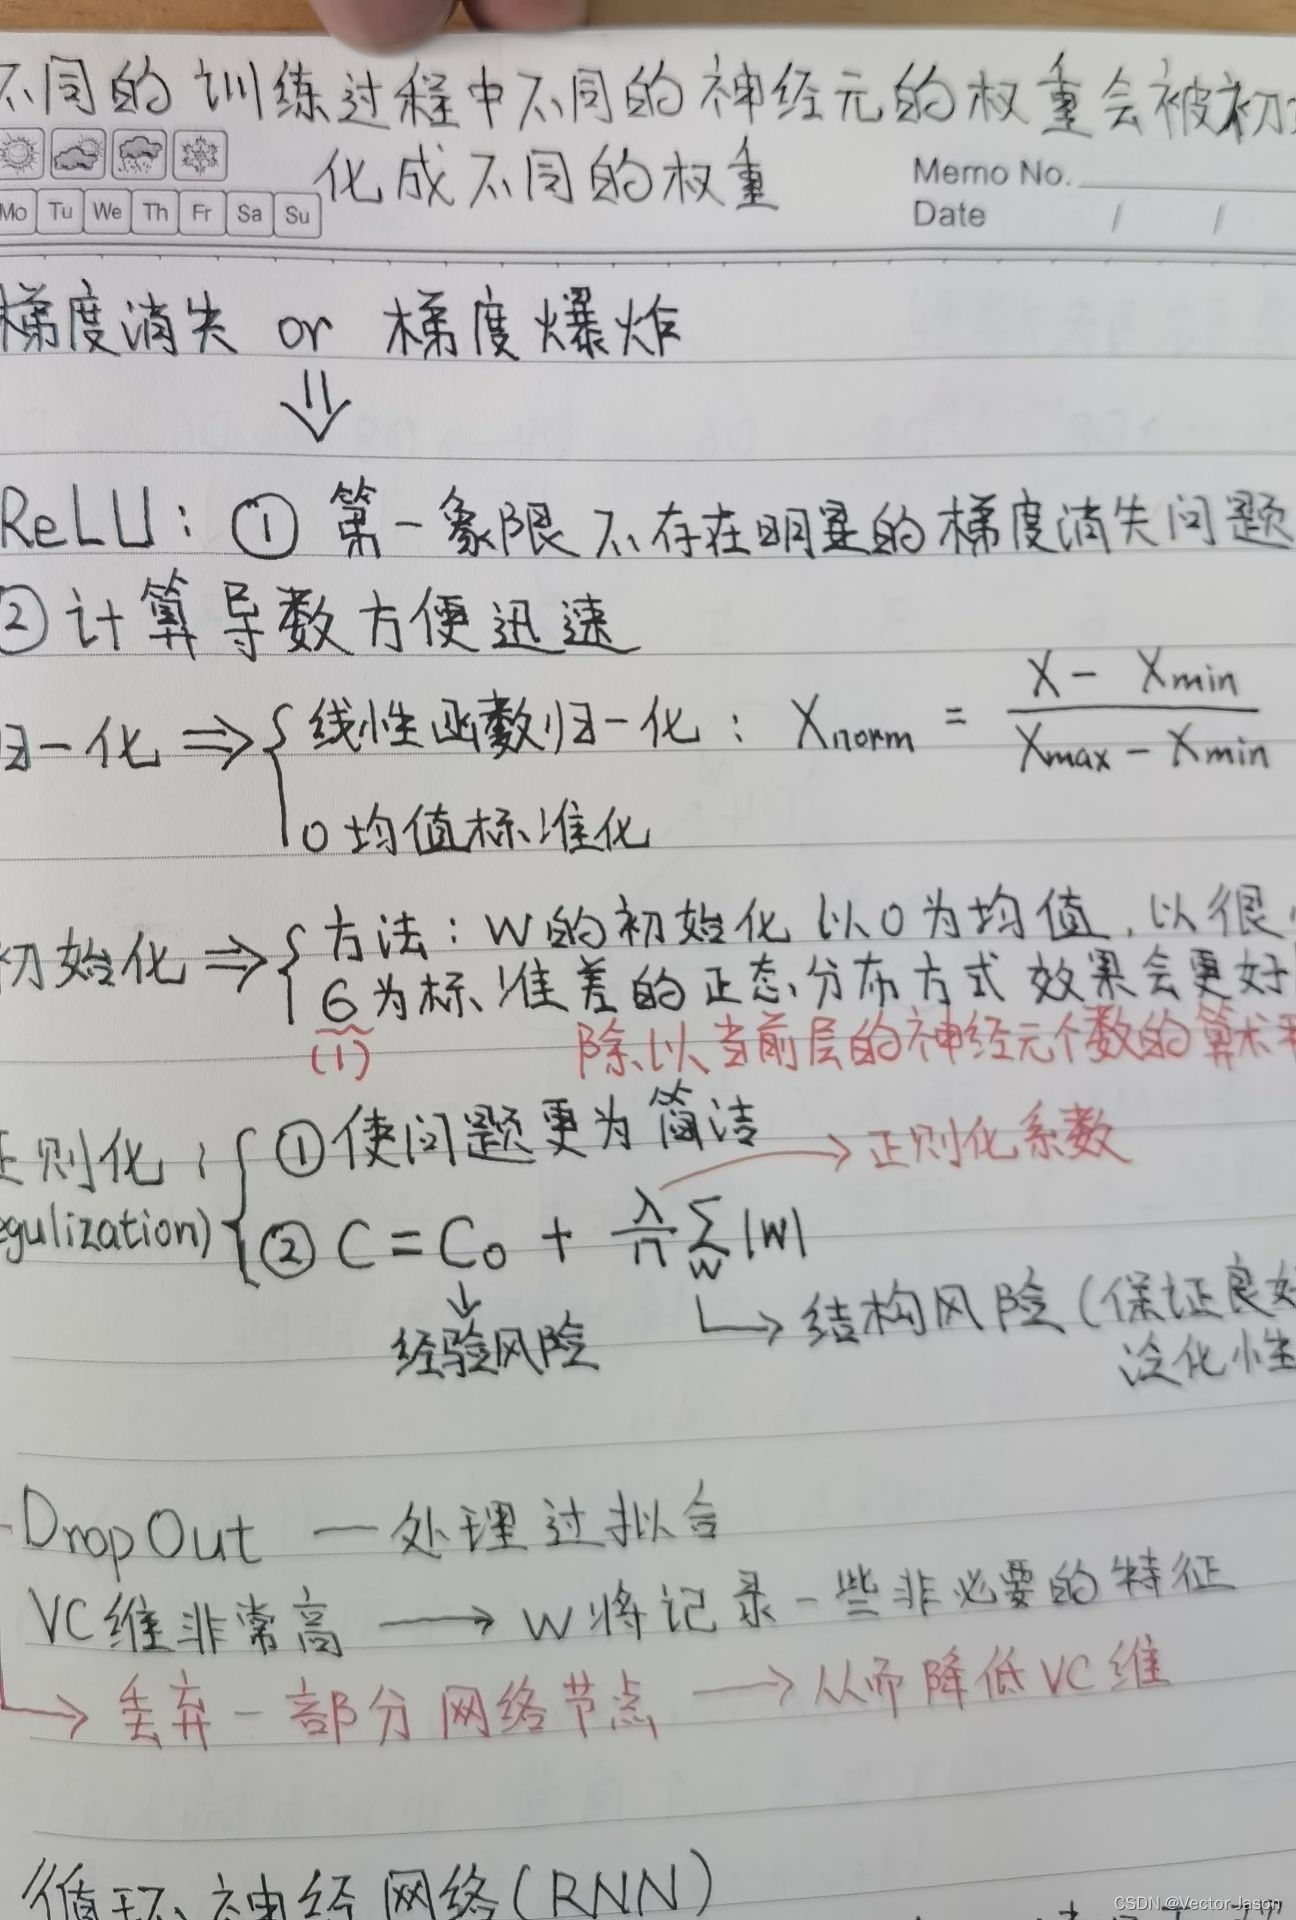 不同的训练过程中不同的神经元的权重会被初
化成不同的权重
Memo No.
Mo Tu We Th Fr Sa Su
Date / /
梯度消失 or 梯度爆炸
⇓
ReLU: ① 第一象限不存在明显的梯度消失问题
② 计算导数方便迅速
归一化 ⇒ { 线性函数归一化: Xnorm = (X - Xmin) / (Xmax - Xmin)
0均值标准化
初始化 ⇒ { 方法: W的初始化以0为均值,以很
6为标准差的正态分布方式效果会更好
(1) 除以当前层的神经元个数的算术
正则化: { ①使问题更为简洁 → 正则化系数
egulization) ② C = C0 + λ/n Σw |w|
↓ 经验风险
→ 结构风险(保证良好
泛化性
DropOut — 处理过拟合
VC维非常高 → W将记录一些非必要的特征
→ 丢弃一部分网络节点 → 从而降低VC维
循环神经网络(RNN)
CSDN @Vector Jason